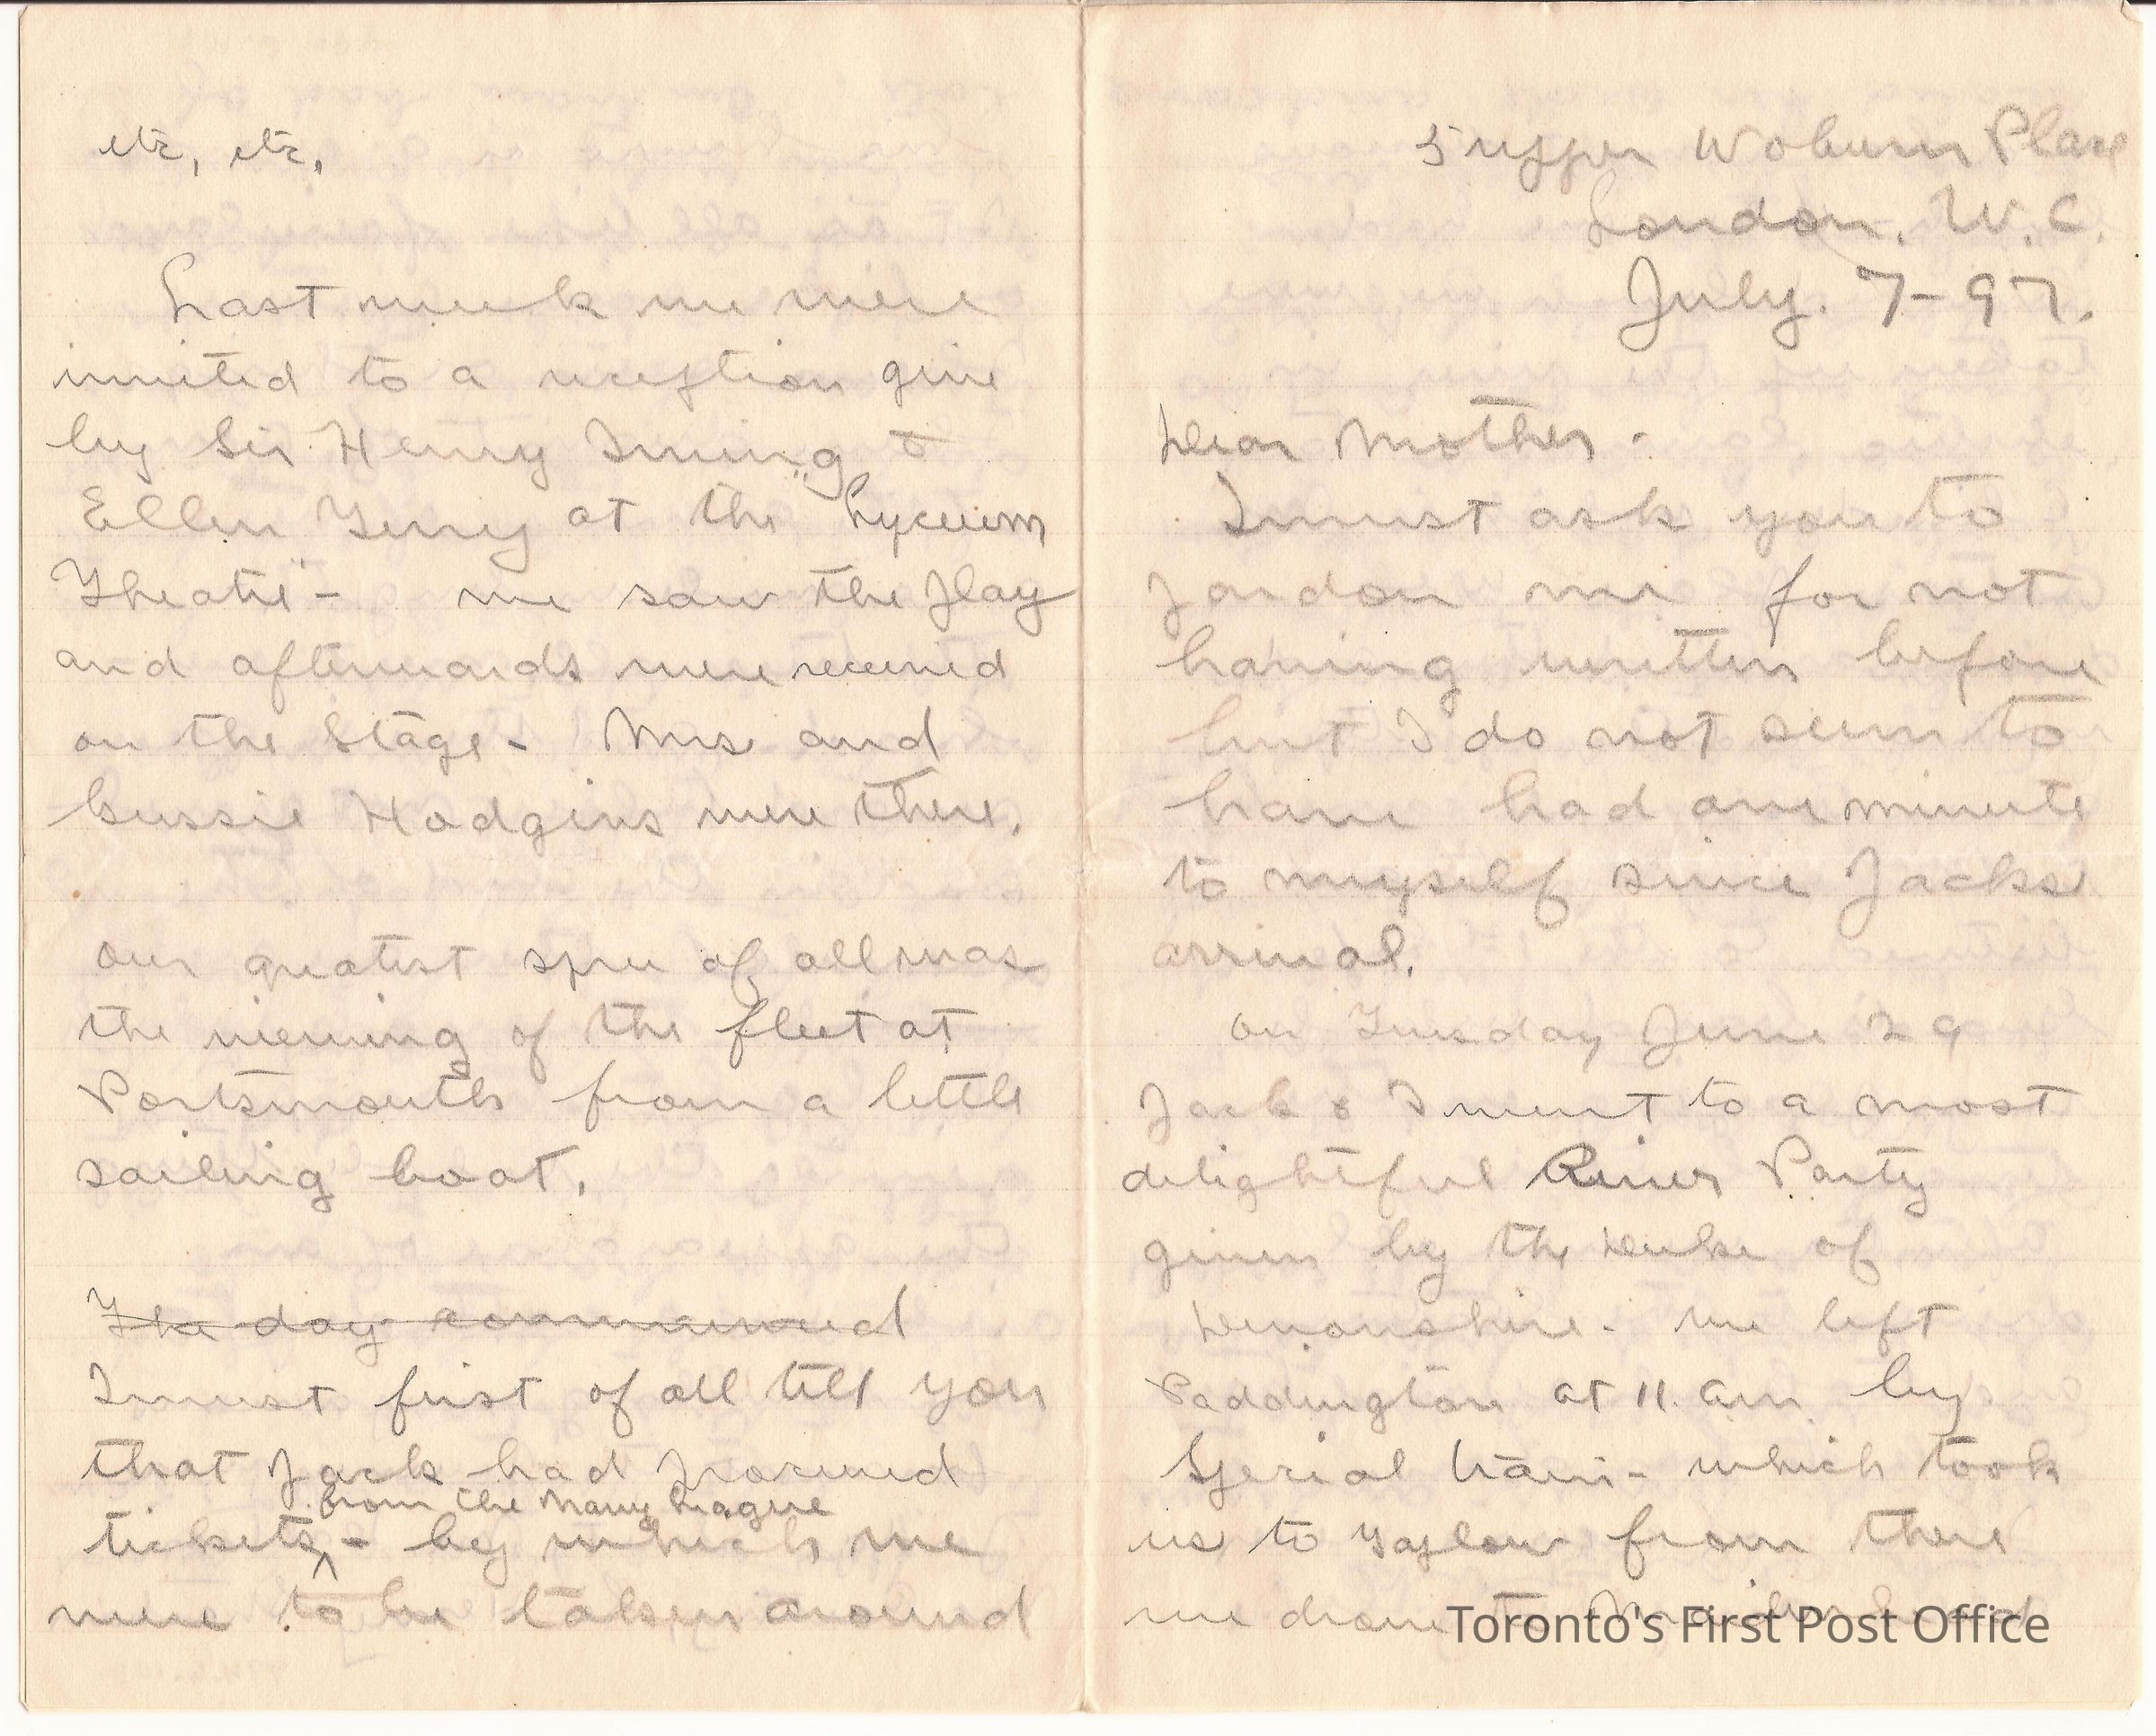 5 upper Woburn Place
London. W.C.
July. 7-97.
Dear Mother -
I must ask you to
pardon me for not
having written before
but I do not seem to
have had one minute
to myself since Jacks
arrival.
On Tuesday June 29
Jack & I went to a most
delightful River Party
given by the Duke of
Devonshire - we left
Paddington at 11. am by
Special train - which took
us to Taplow from there
we drove to Maidenhead
etc, etc,
Last week we were
invited to a reception give
by Sir Henry Irving &
Ellen Terry at the "Lyceum
Theatre" - we saw the play
and afterwards were received
on the Stage - Mrs and
Gussie Hodgins were there.
Our greatest spree of all was
the viewing of the fleet at
Portsmouth from a little
sailing boat.
The day commenced
I must first of all tell you
that Jack had procured
from the Navy League
tickets - by which we
were to be taken around
Toronto's First Post Office